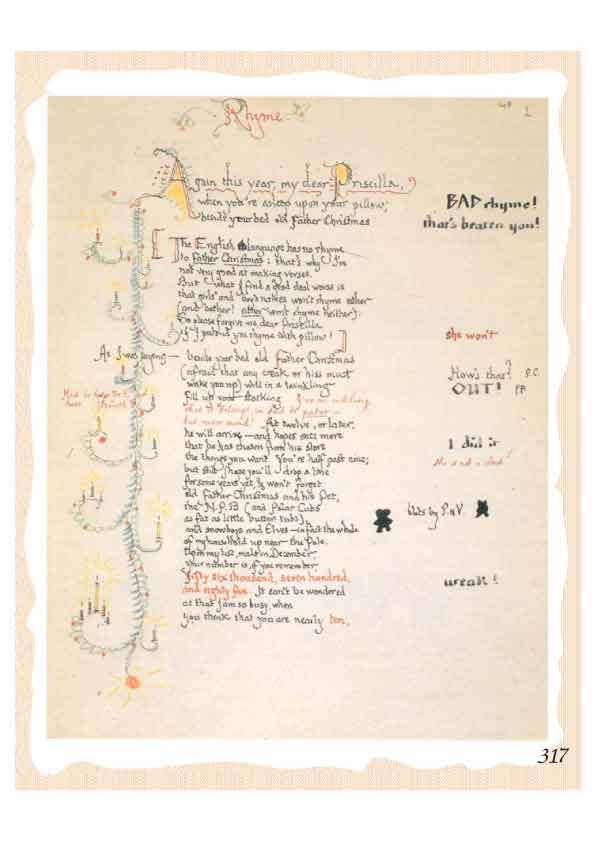 Rhyme
1
Again this year, my dear Priscilla,
when you're asleep upon your pillow;
beside your bed old Father Christmas
BAD rhyme!
that's beaten you!
[The English language has no rhyme
to Father Christmas: that's why I'm
not very good at making verses.
But what I find a good deal worse is
that girls' and boys' names won't rhyme either
(and bother! either won't rhyme neither).
So please forgive me, dear Priscilla
if I pretend you rhyme with pillow!]
she won't
As I was saying —
beside your bed old Father Christmas
(afraid that any creak or hiss must
How's that? P.C.
wake you up) will in a twinkling
OUT! FC
Fill up your stocking
Had to help
At twelve, or later,
he will arrive — and hopes once more
that he has chosen from his store
I did it
the things you want. You're half past nine;
but still I hope you'll drop a line
for some years yet, & won't forget
old Father Christmas and his Pet,
the N.P.B (and Polar Cubs
as fat as little butter tubs),
blots by P & V
and snowboys and Elves — in fact the whole
of my household up near the Pole.
Upon my list, made in December
your number is, if you remember
fifty six thousand, seven hundred,
weak!
and eighty five. It can't be wondered
at that I am so busy, when
you think that you are nearly ten,
317